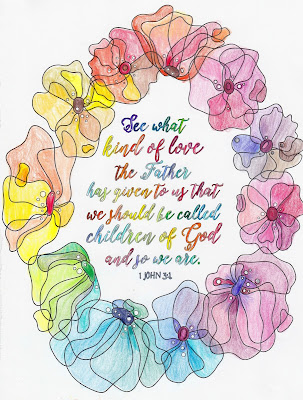 See what
kind of love
the Father
has given to us that
we should be called
children of God
and so we are.
1 JOHN 3:1